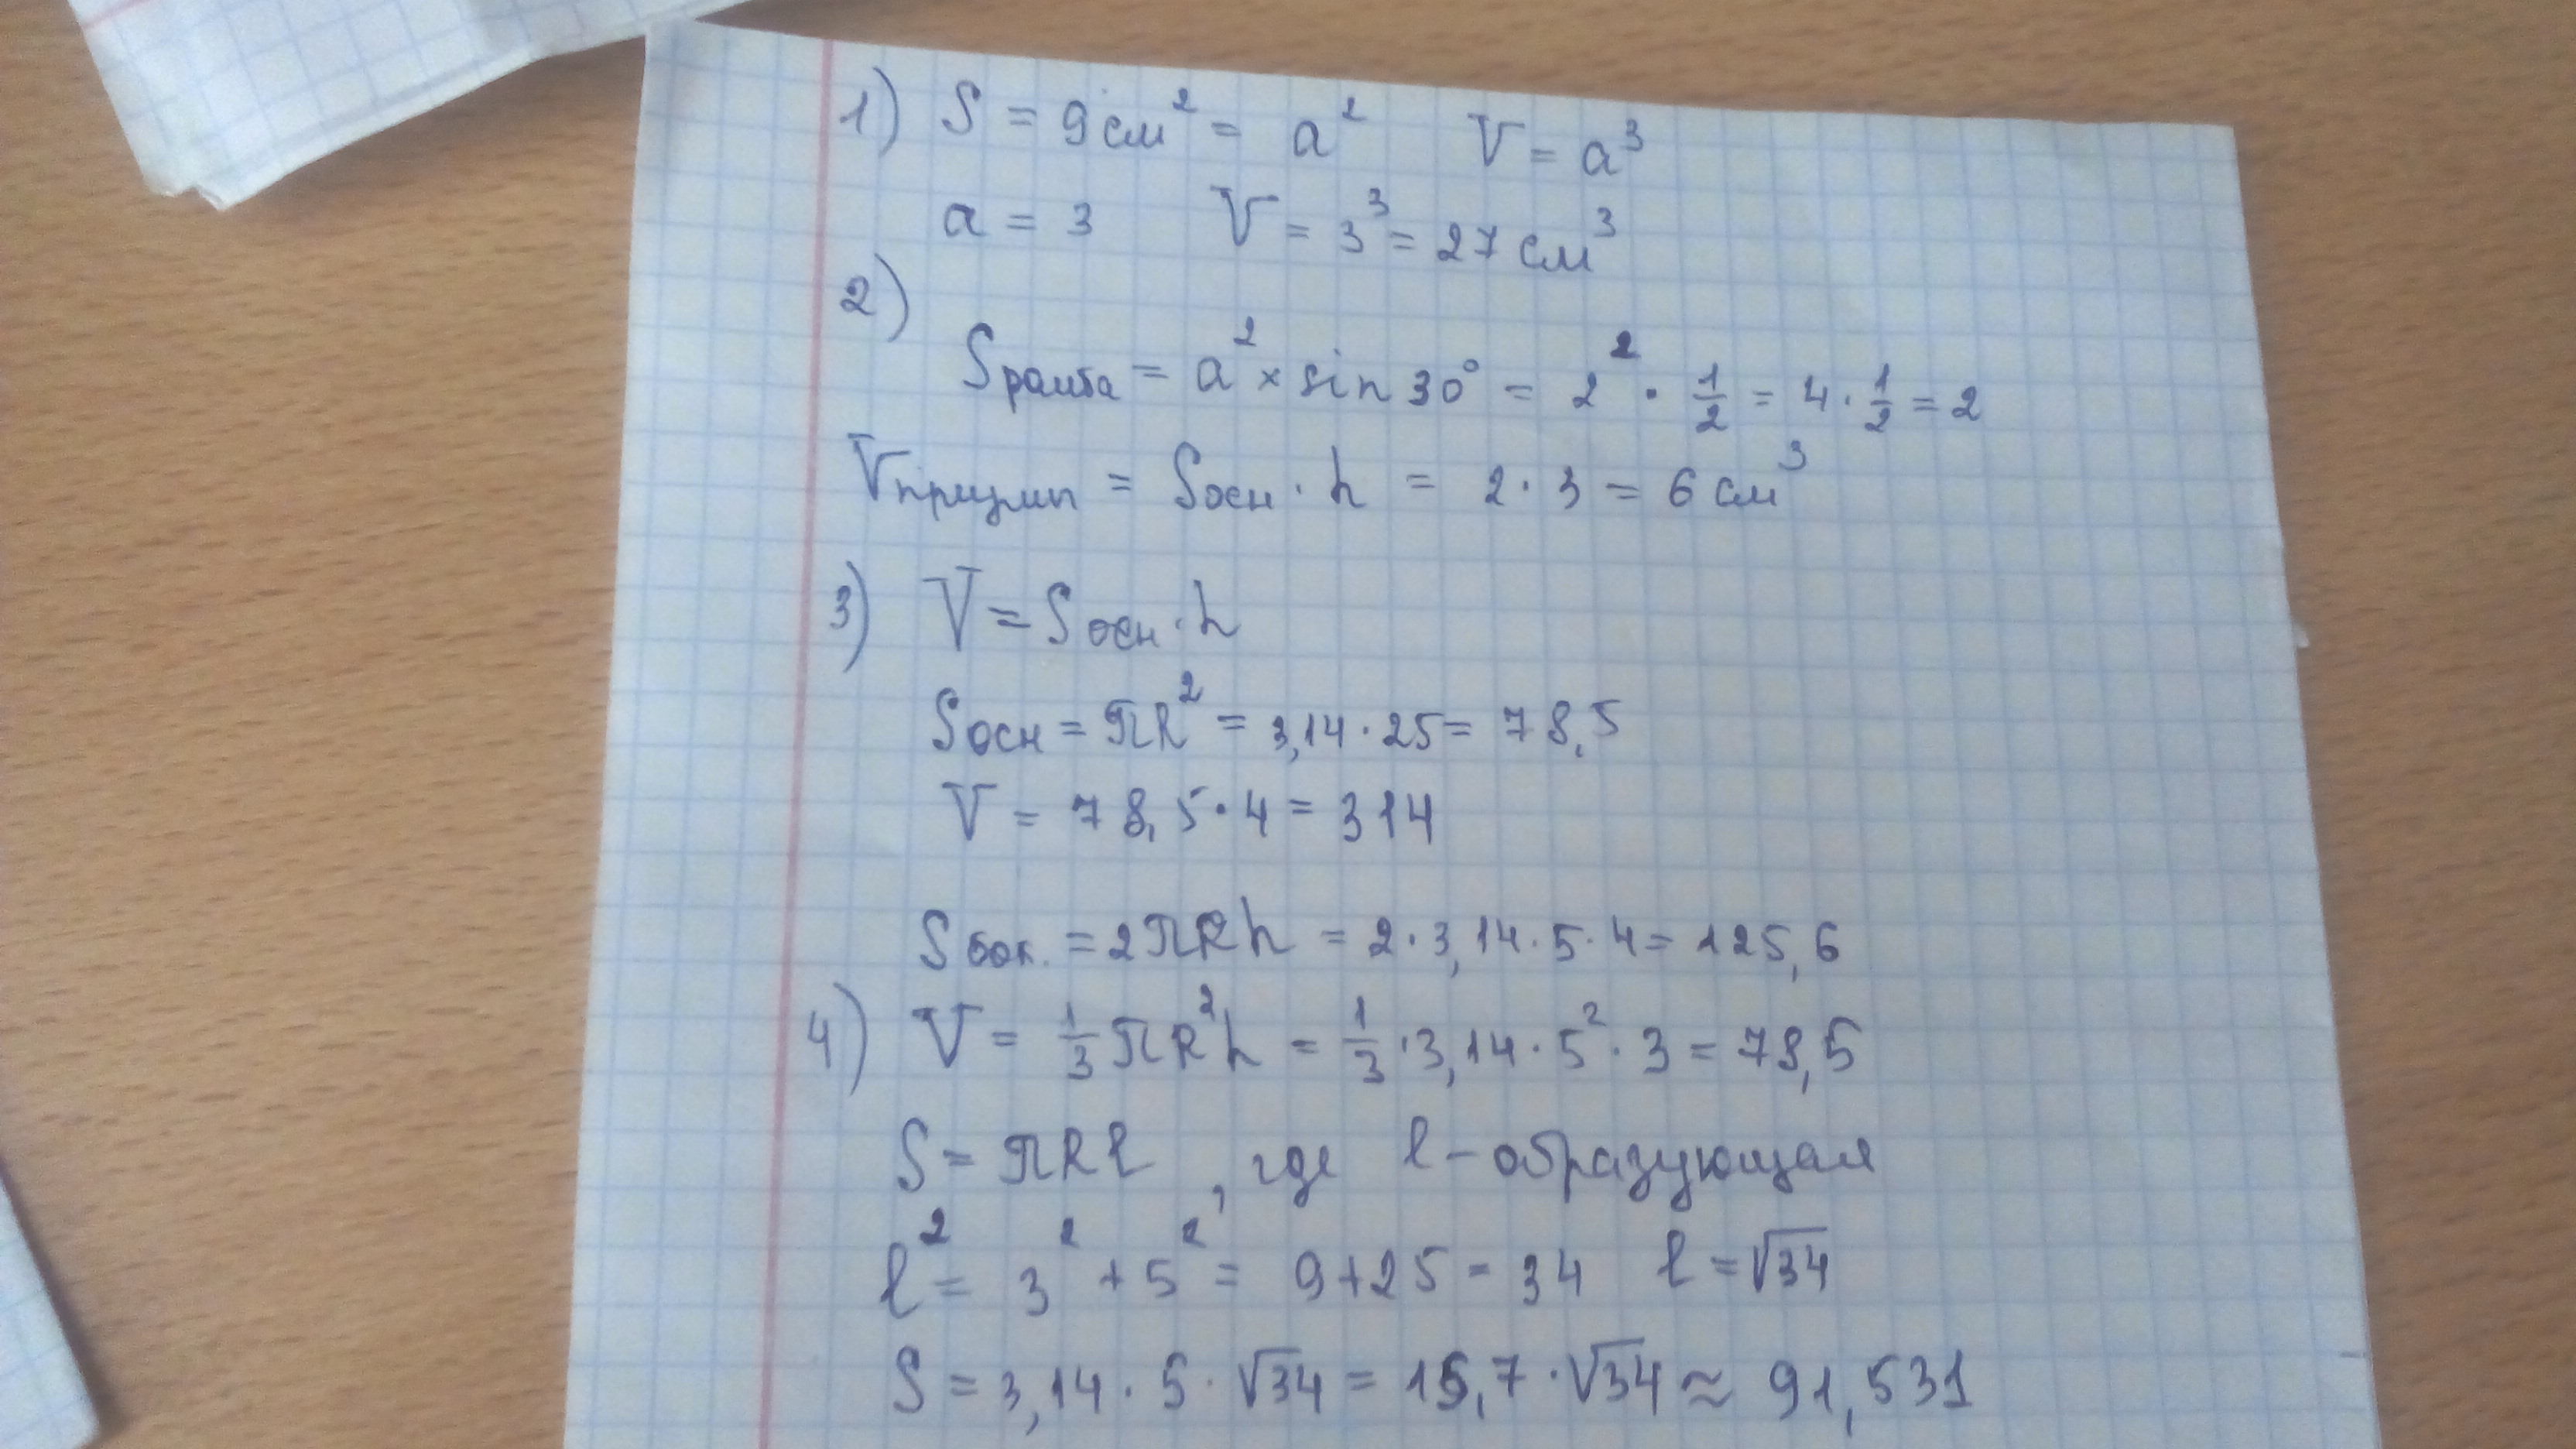 1) S = 9 см² = a² V = a³
a = 3 V = 3³ = 27 см³
2)
Sромба = a² × sin 30° = 2² · 1/2 = 4 · 1/2 = 2
Vпризмы = Sосн · h = 2 · 3 = 6 см³
3) V = Sосн · h
Sосн = πR² = 3,14 · 25 = 78,5
V = 78,5 · 4 = 314
Sбок. = 2πRh = 2 · 3,14 · 5 · 4 = 125,6
4) V = 1/3 πR²h = 1/3 · 3,14 · 5² · 3 = 78,5
S = πRl, где l - образующая
l² = 3² + 5² = 9 + 25 = 34 l = √34
S = 3,14 · 5 · √34 = 15,7 · √34 ≈ 91,531